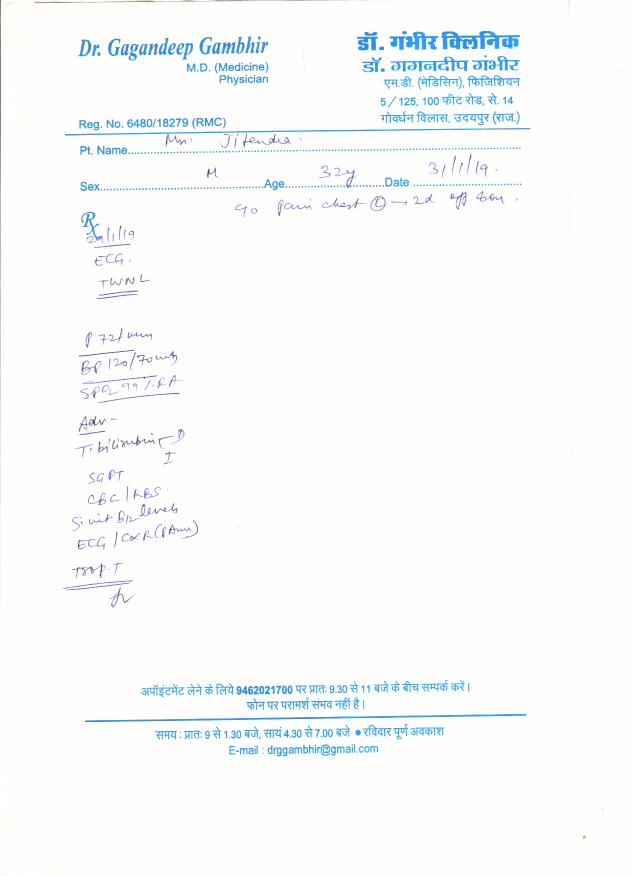 Dr. Gagandeep Gambhir
M.D. (Medicine)
Physician
Reg. No. 6480/18279 (RMC)
डॉ. गंभीर क्लिनिक
डॉ. गगनदीप गंभीर
एम.डी. (मेडिसिन), फिजिशियन
5/125, 100 फीट रोड, से. 14
गोवर्धन विलास, उदयपुर (राज.)
Pt. Name Mr. Jitendra
Sex M Age 32y Date 31/1/19.
c/o pain chest Ⓛ → 2d off &on.
Rx
29/1/19
ECG.
TWNL
P 72/min
BP 120/70
SPO2 99%.RA
Adv -
T. bilirubin D
I
SGPT
CBC/RBS
S. vit B12 levels
ECG/CXR (PA)
Trop-T
अपॉइंटमेंट लेने के लिये 9462021700 पर प्रातः 9.30 से 11 बजे के बीच सम्पर्क करें।
फोन पर परामर्श संभव नहीं है।
समय : प्रातः 9 से 1.30 बजे, सायं 4.30 से 7.00 बजे ● रविवार पूर्ण अवकाश
E-mail : drggambhir@gmail.com